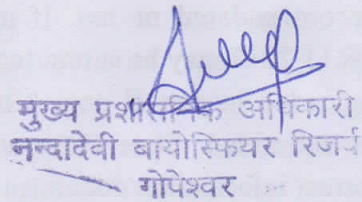 मुख्य प्रशासनिक अधिकारी
नन्दादेवी बायोस्फियर रिजर्व
गोपेश्वर